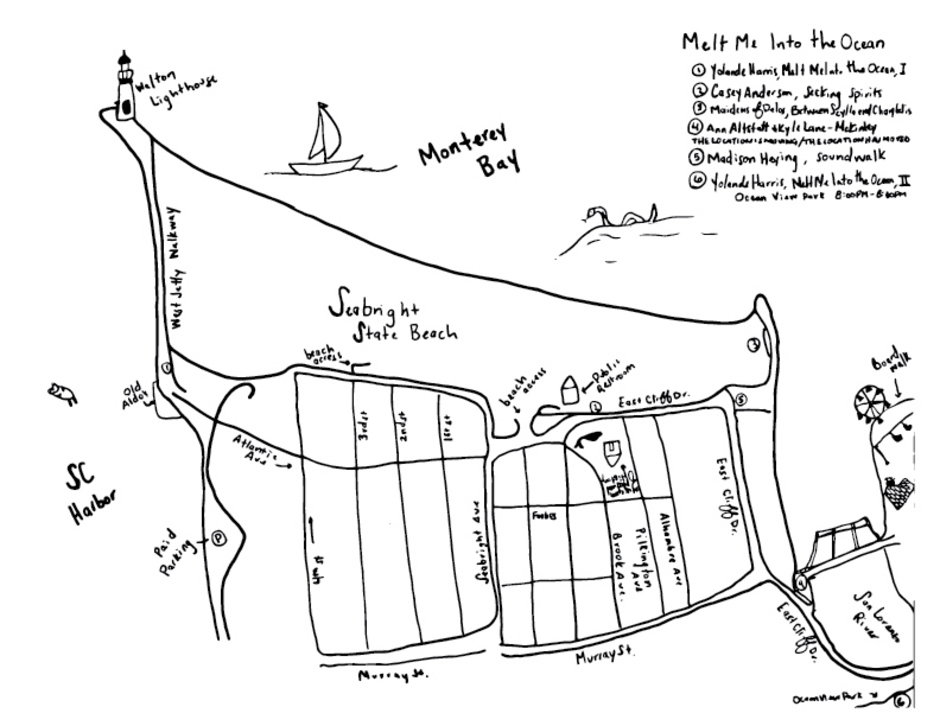 Melt Me Into the Ocean
① Yolande Harris, Melt Me Into the Ocean, I
② Casey Anderson, Seeking Spirits
③ Maidens of Delos, Between Scylla and Charybdis
④ Ann Altstatt & Kyle Lane-McKinley
THE LOCATION IS MOVING/THE LOCATION HAS MOVED
⑤ Madison Heying, soundwalk
⑥ Yolande Harris, Melt Me Into the Ocean, II
Ocean View Park 8:00PM-8:40PM
Walton
Lighthouse
Monterey
Bay
West Jetty Walkway
Seabright
State Beach
beach
access
beach
access
Public
Restroom
East Cliff Dr.
Board
walk
①
②
③
⑤
Old
Aldo's
SC
Harbor
Atlantic
Ave
3rd st
2nd st
1st st
4th st
Seabright Ave
Forbes
Brook Ave.
Pilkington
Ave
Alhambra Ave
East Cliff
Dr.
Paid
Parking
Ⓟ
④
San Lorenzo
River
East Cliff
Dr.
Murray St.
Murray St.
Ocean View Park
⑥